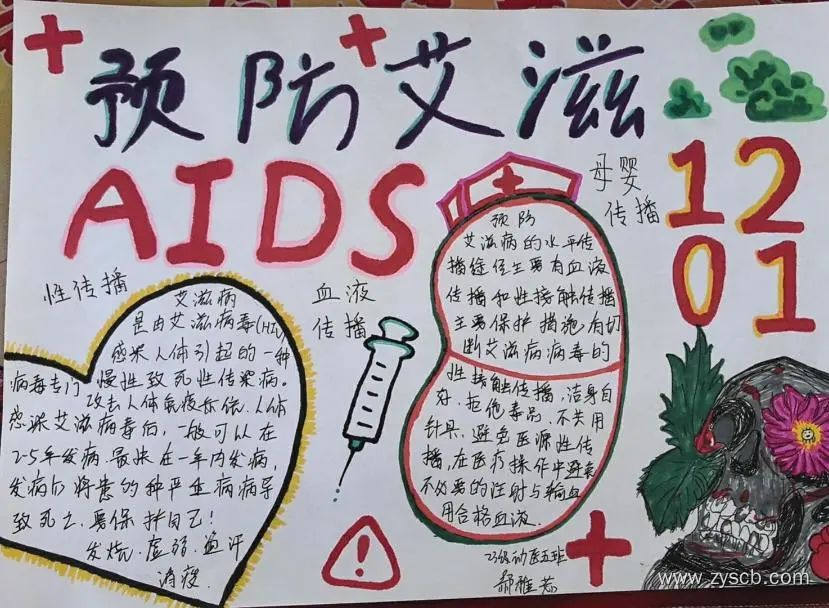 预防艾滋
AIDS
12
01
母婴
传播
性传播
血液
传播
艾滋病
是由艾滋病毒(HIV)
感染人体引起的一种
慢性致死性传染病。
病毒专门
攻击人体免疫系统.人体
感染艾滋病毒后,一般可以在
2-5年发病.最快在一年内发病,
发病后将患的种严重病病导
致死亡,要保护自己!
发烧.虚弱.盗汗
消瘦.
预防
艾滋病的水平传
播途径主要有血液
传播和性接触传播
主要保护措施有切
断艾滋病病毒的
性接触传播,洁身自
好,拒绝毒品,不共用
针具,避免医源性传
播,在医疗操作中避免
不必要的注射与输血
用合格血液.
23级动医五班
郝雅
www.zyscb.com